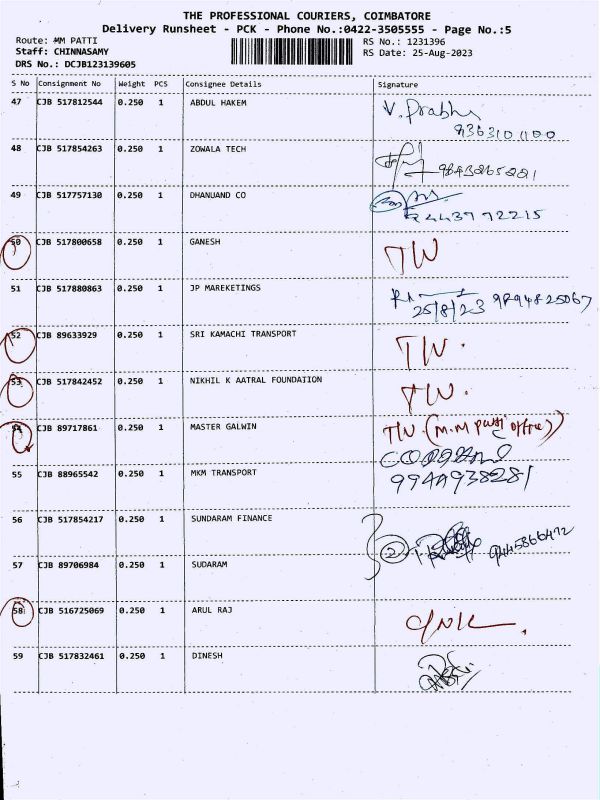 THE PROFESSIONAL COURIERS, COIMBATORE
Delivery Runsheet - PCK - Phone No.:0422-3505555 - Page No.:5
Route: MM PATTI RS No.: 1231396
Staff: CHINNASAMY RS Date: 25-Aug-2023
DRS No.: DCJB123139605
S No Consignment No Weight PCS Consignee Details Signature
47 CJB 517812544 0.250 1 ABDUL HAKEM V. Prabhu
48 CJB 517854263 0.250 1 ZOWALA TECH
49 CJB 517757130 0.250 1 DHANUAND CO
50 CJB 517800658 0.250 1 GANESH TW
51 CJB 517880863 0.250 1 JP MAREKETINGS
25/8/23 9894825067
52 CJB 89633929 0.250 1 SRI KAMACHI TRANSPORT TW.
53 CJB 517842452 0.250 1 NIKHIL K AATRAL FOUNDATION TW.
54 CJB 89717861 0.250 1 MASTER GALWIN TW. (M.M patti office)
55 CJB 88965542 0.250 1 MKM TRANSPORT 9944938281
56 CJB 517854217 0.250 1 SUNDARAM FINANCE
2 9445866472
57 CJB 89706984 0.250 1 SUDARAM
58 CJB 516725069 0.250 1 ARUL RAJ
59 CJB 517832461 0.250 1 DINESH